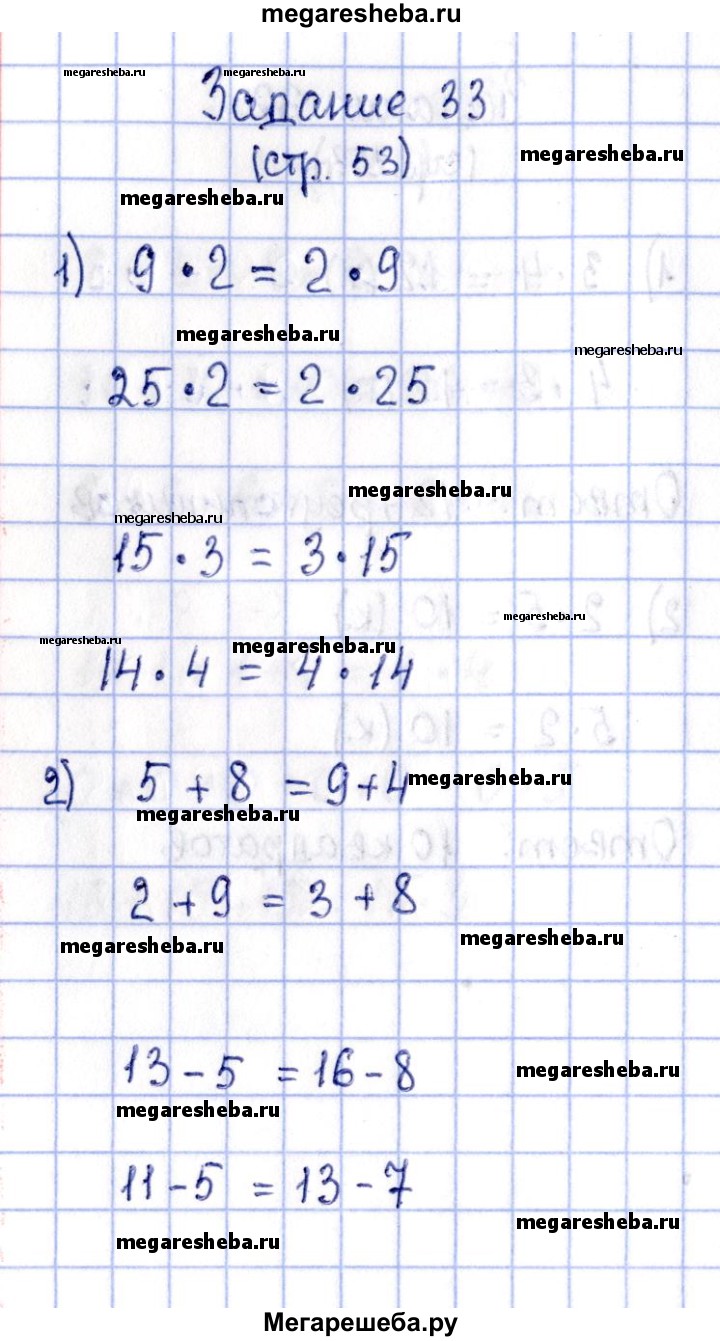 megaresheba.ru
megaresheba.ru megaresheba.ru
Задание 33
megaresheba.ru
(стр. 53)
megaresheba.ru
1) 9 · 2 = 2 · 9
megaresheba.ru
megaresheba.ru
25 · 2 = 2 · 25
megaresheba.ru
megaresheba.ru
15 · 3 = 3 · 15
megaresheba.ru
megaresheba.ru megaresheba.ru
14 · 4 = 4 · 14
2) 5 + 8 = 9 + 4
megaresheba.ru
megaresheba.ru
2 + 9 = 3 + 8
megaresheba.ru megaresheba.ru
13 - 5 = 16 - 8
megaresheba.ru
megaresheba.ru
11 - 5 = 13 - 7
megaresheba.ru
megaresheba.ru
Мегарешеба.ру